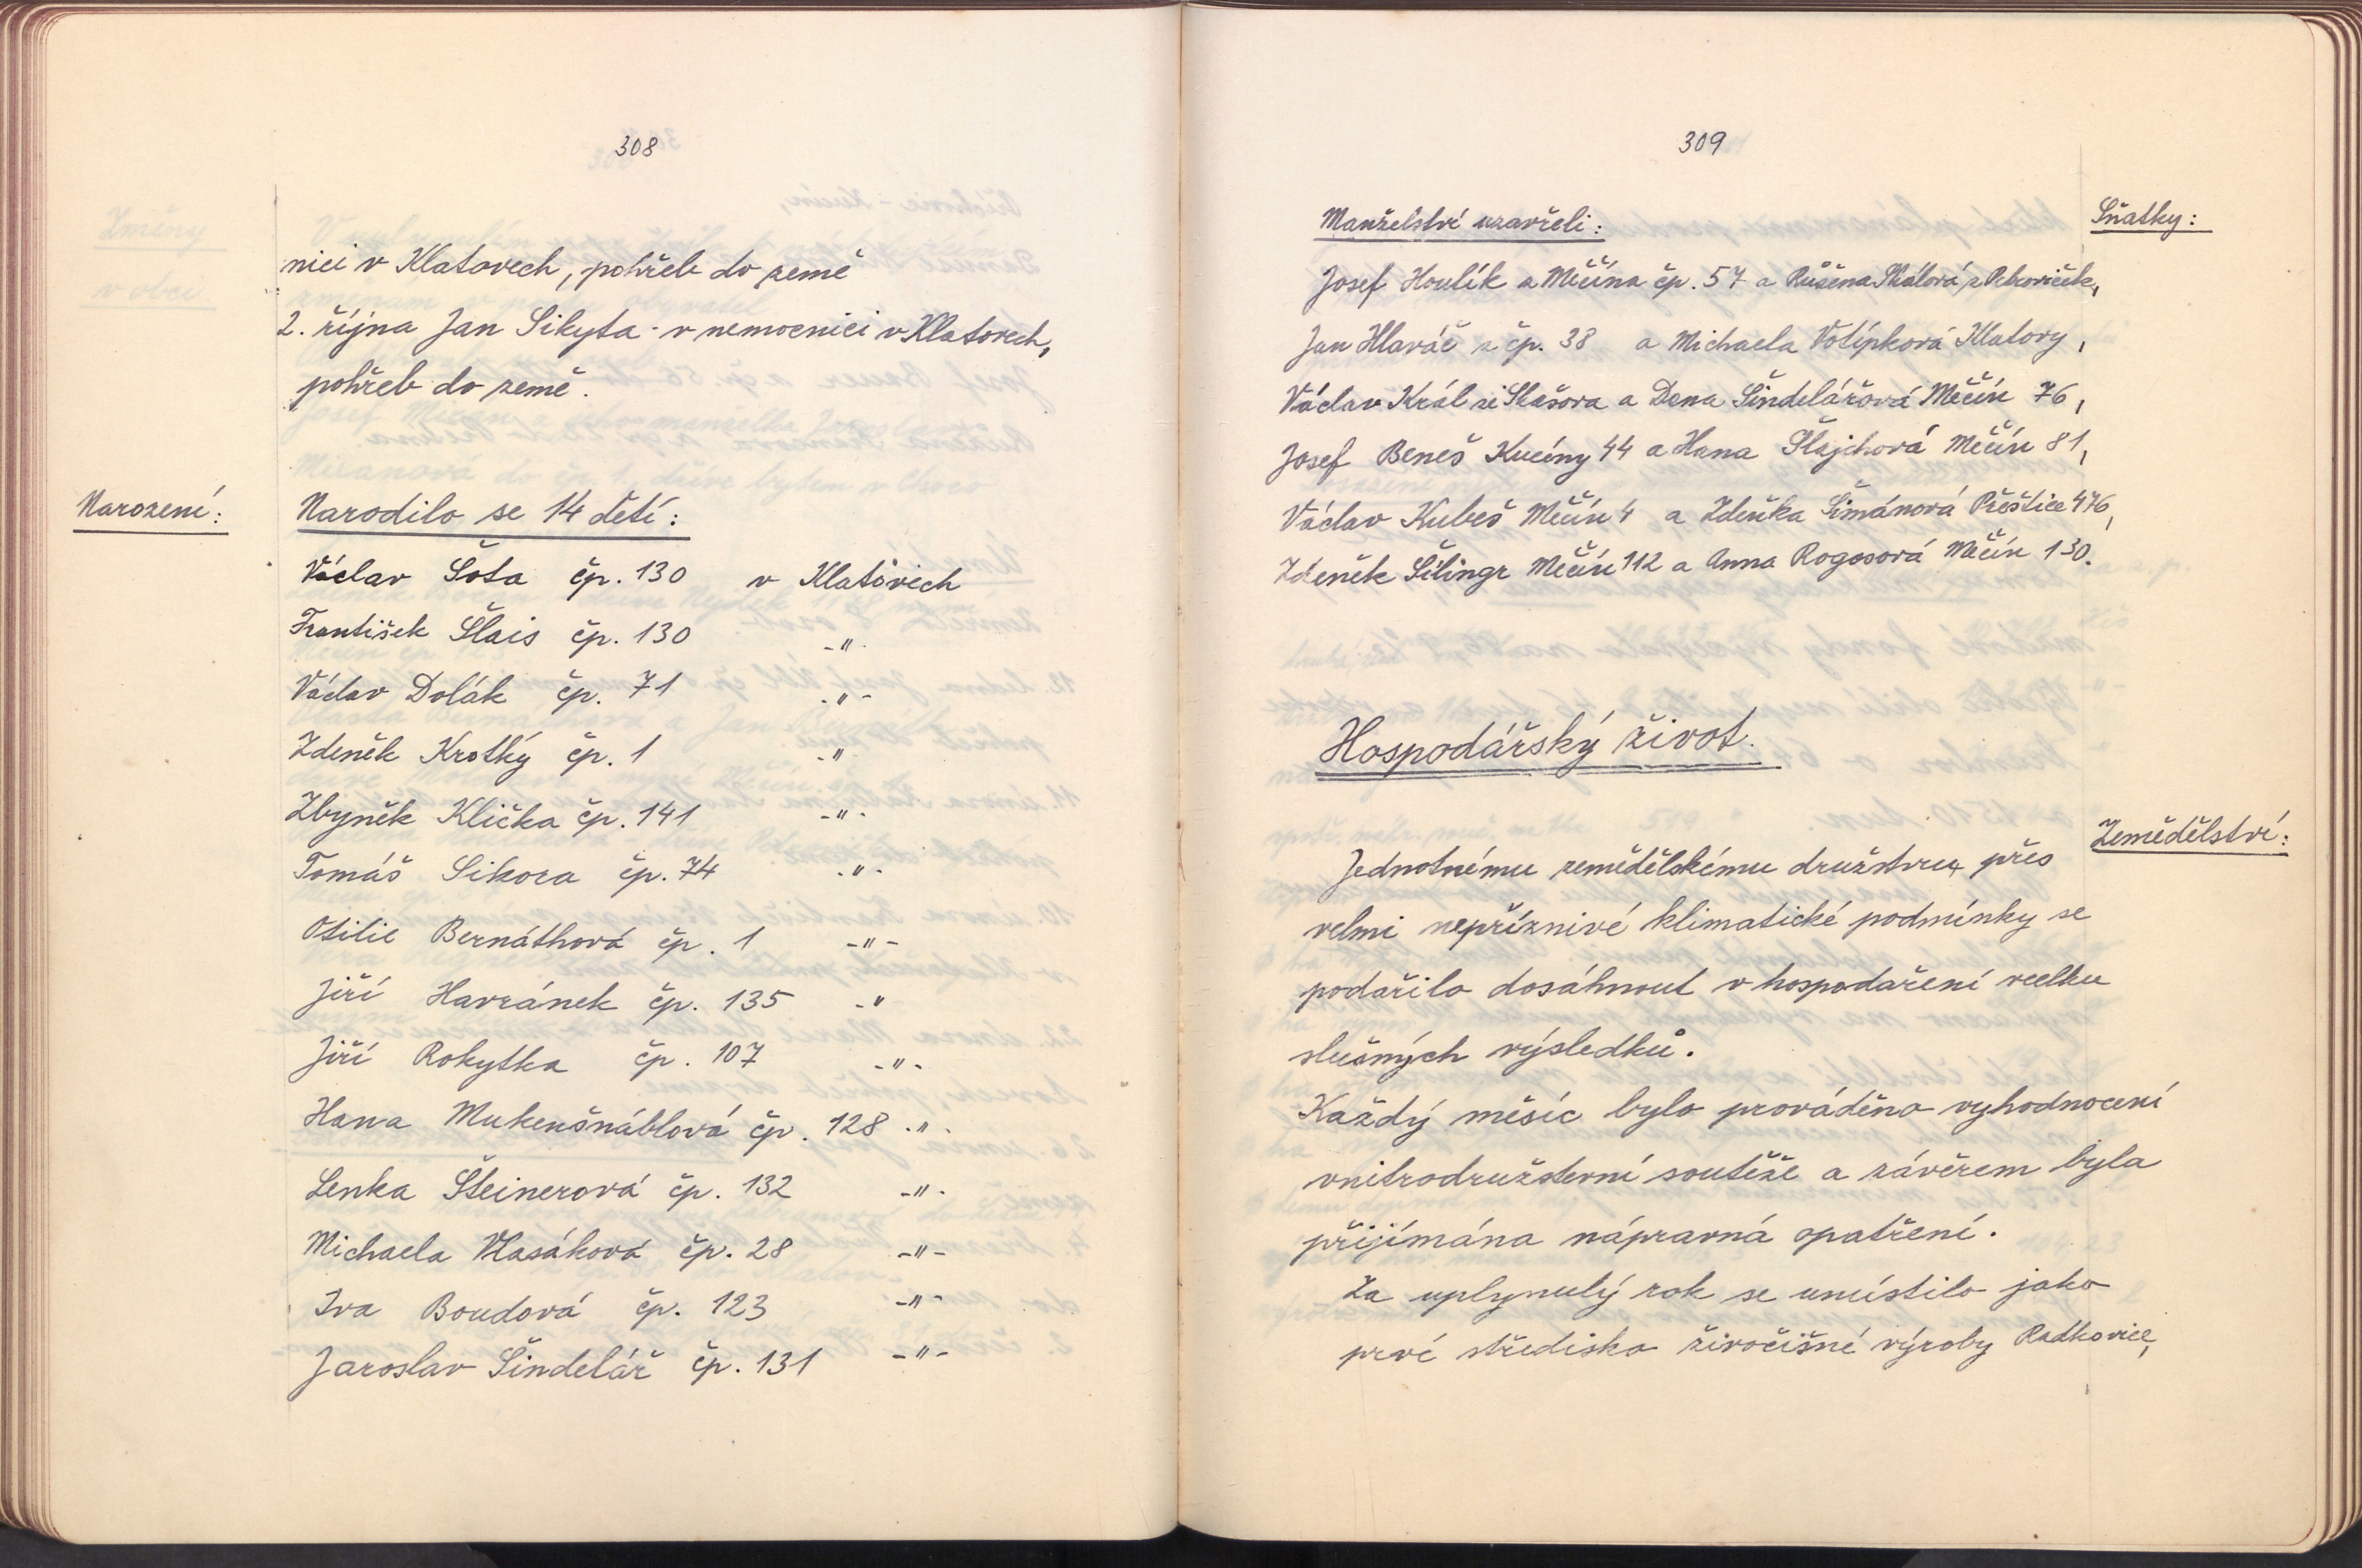 308
nici v Klatovech, pohřeb do země
2. října Jan Sikyta - v nemocnici v Klatovech,
pohřeb do země.
Narození:
Narodilo se 14 dětí:
Václav Šota čp. 130 v Klatovech
František Šlais čp. 130 -"-
Václav Dolák čp. 71 -"-
Zdeněk Krotký čp. 1 -"-
Zbyněk Klička čp. 141 -"-
Tomáš Sikora čp. 74 -"-
Otilie Bernáthová čp. 1 -"-
Jiří Havránek čp. 135 -"
Jiří Rokytka čp. 107 -"-
Hana Mukenšnáblová čp. 128 -"-
Lenka Šteinerová čp. 132 -"-
Michaela Vlasáková čp. 28 -"-
Iva Boudová čp. 123 -"-
Jaroslav Šindelář čp. 131 -"-
309
Sňatky:
Manželství uzavřeli:
Josef Houlík z Měčína čp. 57 a Růžena Skálová z Petroviček,
Jan Hlaváč z čp. 38 a Michaela Votípková Klatovy,
Václav Král ze Skašova a Dana Šindelářová Měčín 76,
Josef Beneš Kucíny 44 a Hana Šlajchová Měčín 81,
Václav Kubeš Měčín 4 a Zdeňka Šimánová Přeštice 476,
Zdeněk Šilingr Měčín 112 a Anna Rogosová Měčín 130.
Hospodářský život.
Zemědělství:
Jednotnému zemědělskému družstvu přes
velmi nepříznivé klimatické podmínky se
podařilo dosáhnout v hospodaření vcelku
slušných výsledků.
Každý měsíc bylo prováděno vyhodnocení
vnitrodružstevní soutěže a závěrem byla
přijímána nápravná opatření.
Za uplynulý rok se umístilo jako
prvé středisko živočišné výroby Radkovice,